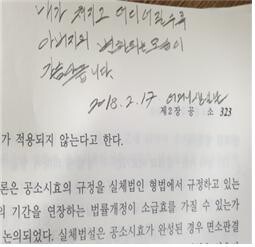 내가 처지고 더디 나갈수록
아버지의 변화되는 모습이
가슴 아픕니다.
2018. 2. 17
제2장 공 소 323
가 적용되지 않는다고 한다.
론은 공소시효의 규정을 실체법인 형법에서 규정하고 있는
의 기간을 연장하는 법률개정이 소급효를 가질 수 있는가
논의되었다. 실체법설은 공소시효가 완성된 경우 면소판결